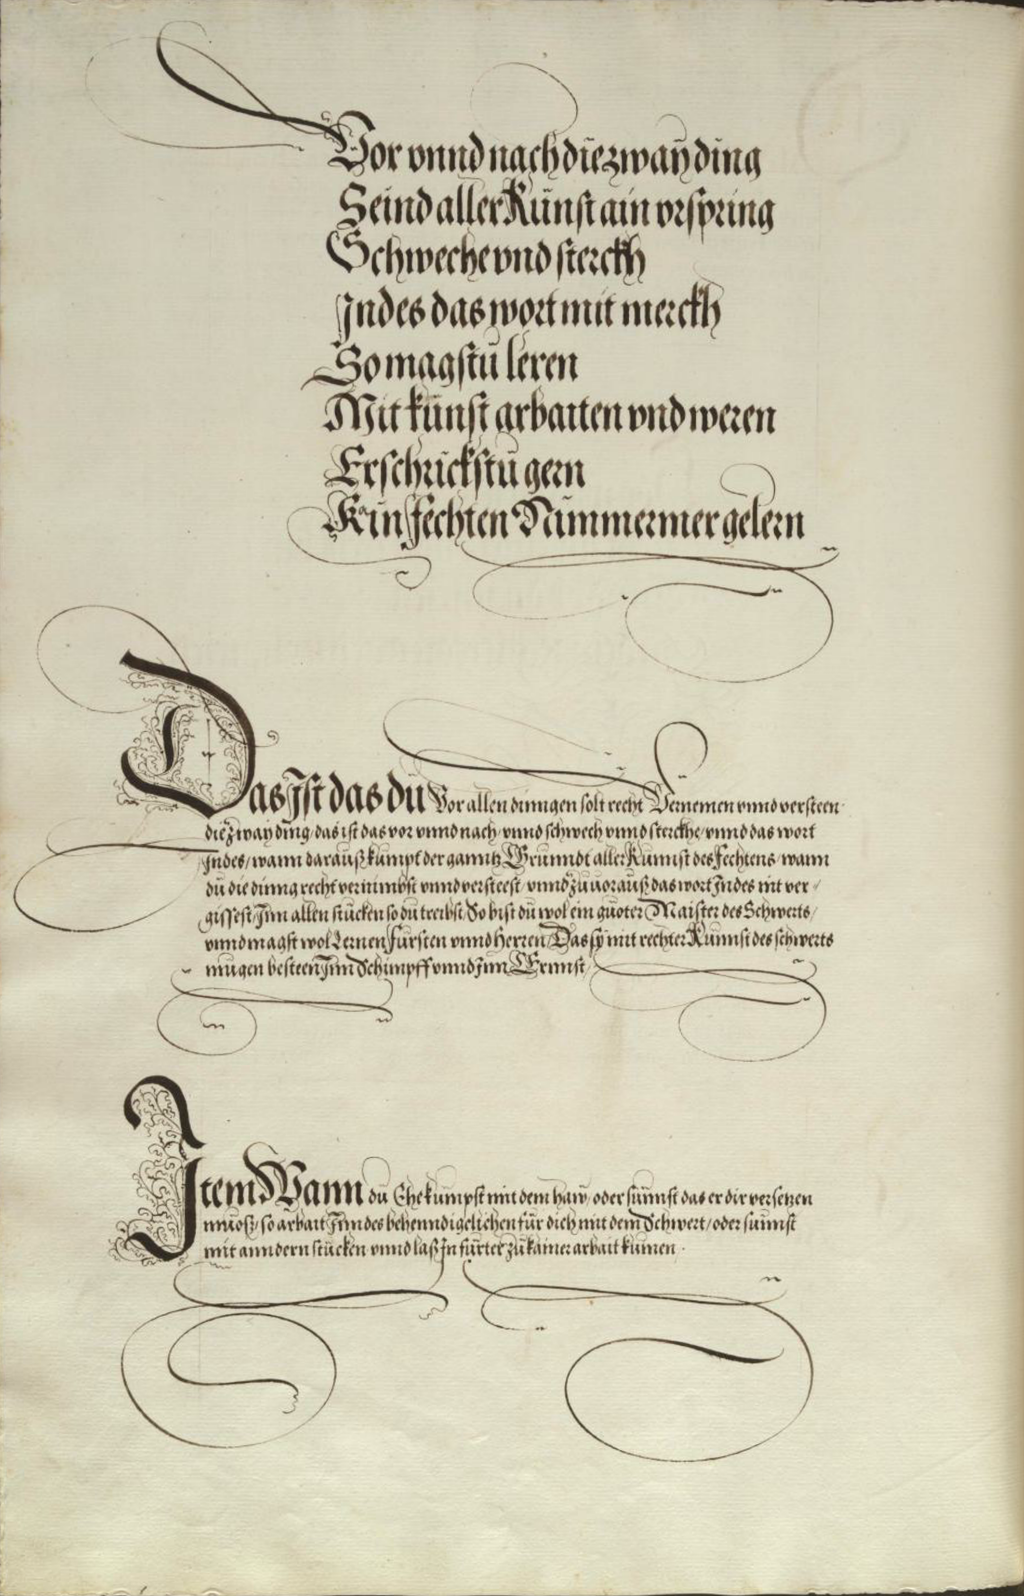 Vor vnnd nach die zway ding
Seind aller Künst ain vrspring
Schweche vnd sterckh
Indes das wort mit merckh
So magstu leren
Mit künst arbaiten vnd weren
Erschrickstu gern
Kain fechten Nimmermer gelern
Das Ist das du Vor allen dinngen solt recht Vernemen vnnd versteen
die zway ding/ das ist das vor vnnd nach/ vnnd schwech vnnd sterckhe/ vnnd das wort
Indes/ wann darauß kumpt der ganntz Grunndt aller Kunnst des Fechtens/ wann
du die dinng recht vernimbst vnnd versteest/ vnnd zuuorauß das wort Indes nit ver/
gissest/ Jnn allen stucken so du treibst/ So bist du wol ein guoter Maister des Schwerts/
vnnd magst wol Lernen Fürsten vnnd Herren/ Das sy mit rechter Kunnst des schwerts
mugen besteen Jnn Schimpff vnnd Jnn Ernnst/
Item Wann du Ehe kumpst mit dem haw/ oder sunnst das er dir versetzen
muoß/ so arbait Jnndes behenndigclichen für dich mit dem Schwert/ oder sunnst
mit anndern stucken vnnd laß Jn fürter zu kainer arbait kumen.